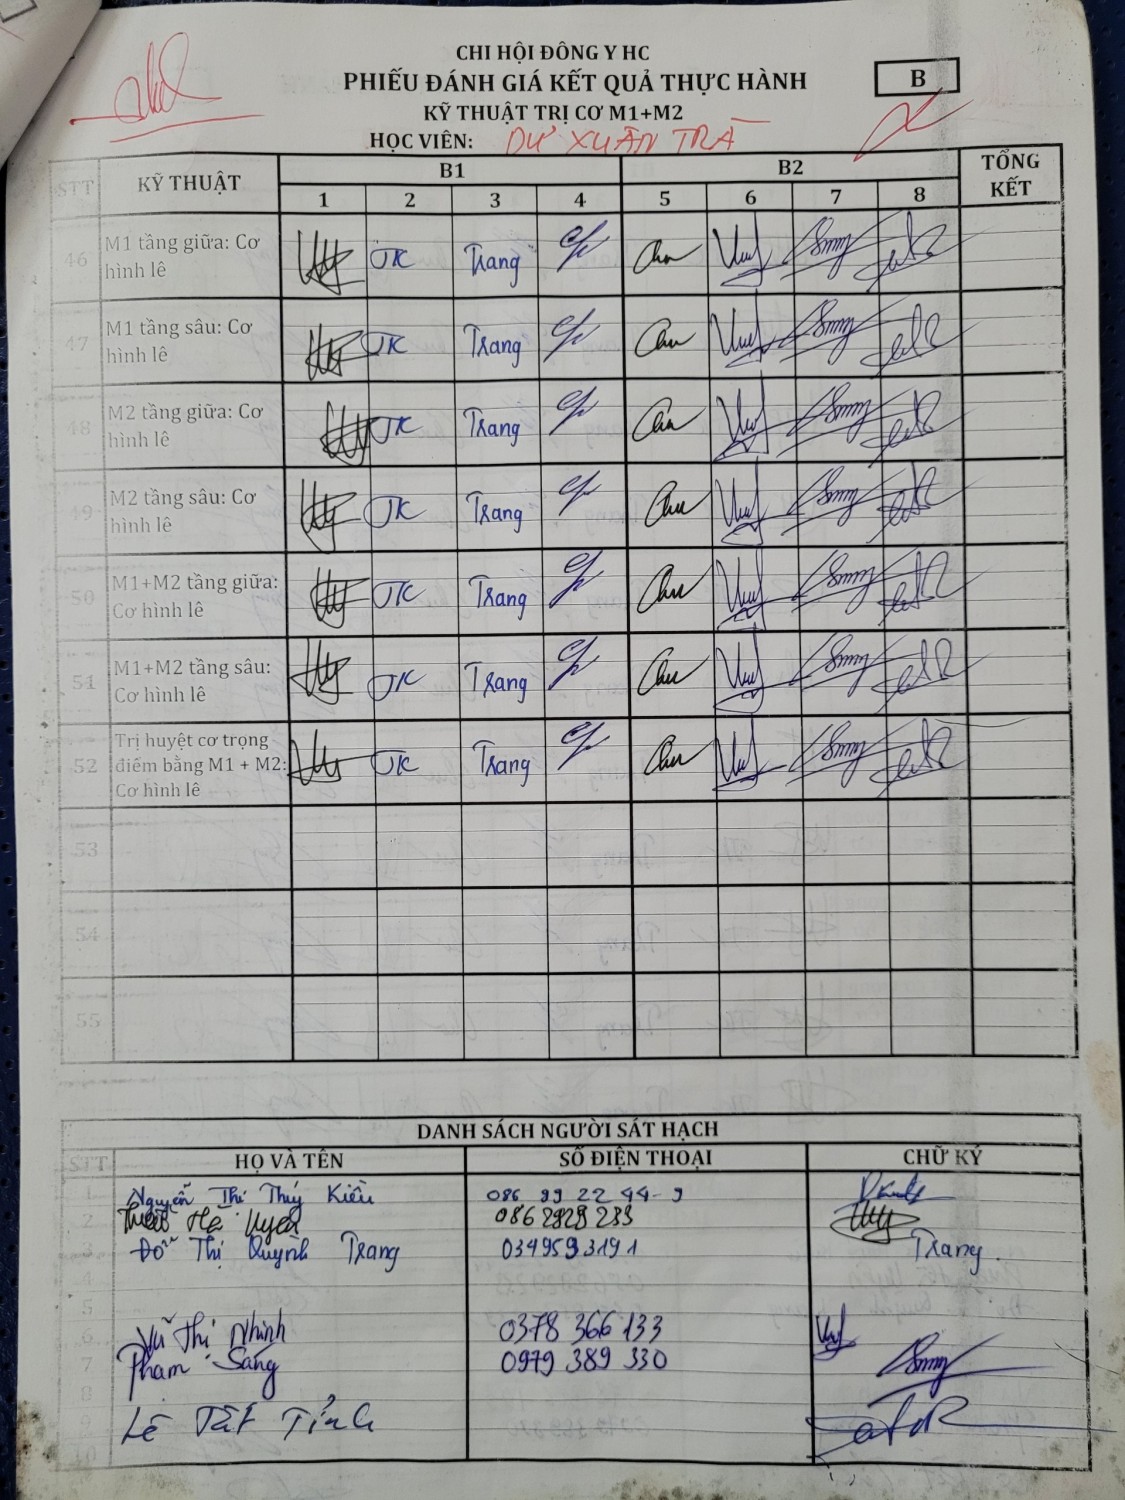 CHI HỘI ĐÔNG Y HC
PHIẾU ĐÁNH GIÁ KẾT QUẢ THỰC HÀNH
B
KỸ THUẬT TRỊ CƠ M1+M2
HỌC VIÊN: DƯ XUÂN TRÀ
STT KỸ THUẬT B1 B2 TỔNG KẾT
1 2 3 4 5 6 7 8
46 M1 tầng giữa: Cơ hình lê JK Trang
47 M1 tầng sâu: Cơ hình lê JK Trang
48 M2 tầng giữa: Cơ hình lê JK Trang
49 M2 tầng sâu: Cơ hình lê JK Trang
50 M1+M2 tầng giữa: Cơ hình lê JK Trang
51 M1+M2 tầng sâu: Cơ hình lê JK Trang
52 Trị huyệt cơ trọng điểm bằng M1 + M2: Cơ hình lê JK Trang
53
54
55
DANH SÁCH NGƯỜI SÁT HẠCH
STT HỌ VÀ TÊN SỐ ĐIỆN THOẠI CHỮ KÝ
1 Nguyễn Thị Thúy Kiều 086 99 22 44-9
2 086 2929 233
3 Đoàn Thị Quỳnh Trang 0349593191 Trang
4
5
6 Vũ Thị Nhinh 0378 366 133
7 Phạm Sáng 0979 389 330
8
9 Lê Tất Tỉnh
10